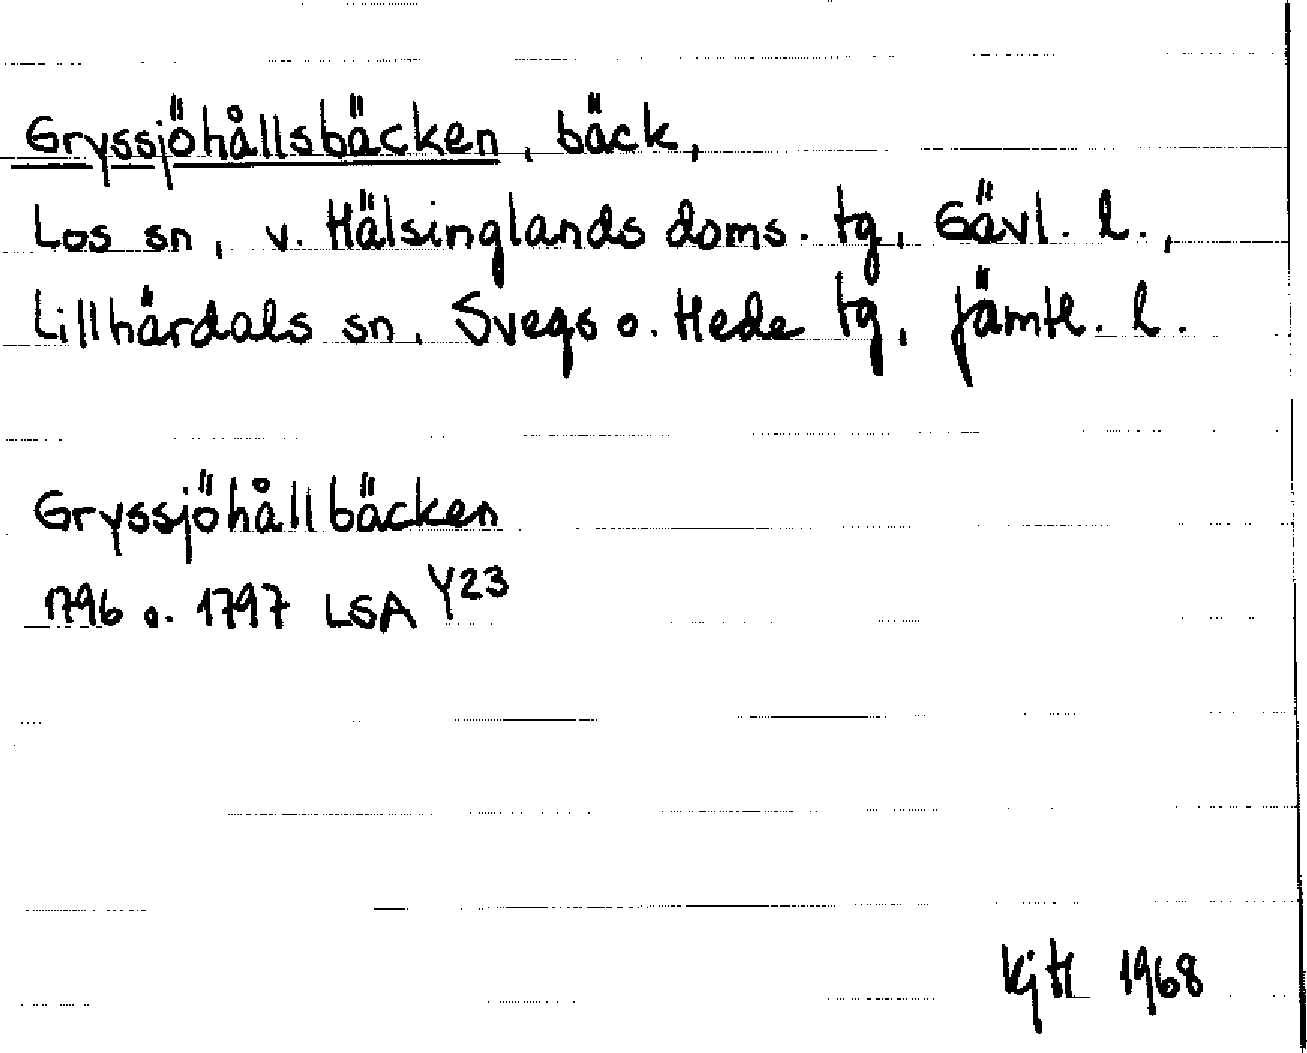 Gryssjöhållsbäcken, bäck,
Los sn, v. Hälsinglands doms. tg, Gävl. l.,
Lillhärdals sn, Svegs o. Hede tg, Jämtl. l.
Gryssjöhållbäcken
1796 o. 1797 LSA Y23
KjH 1968